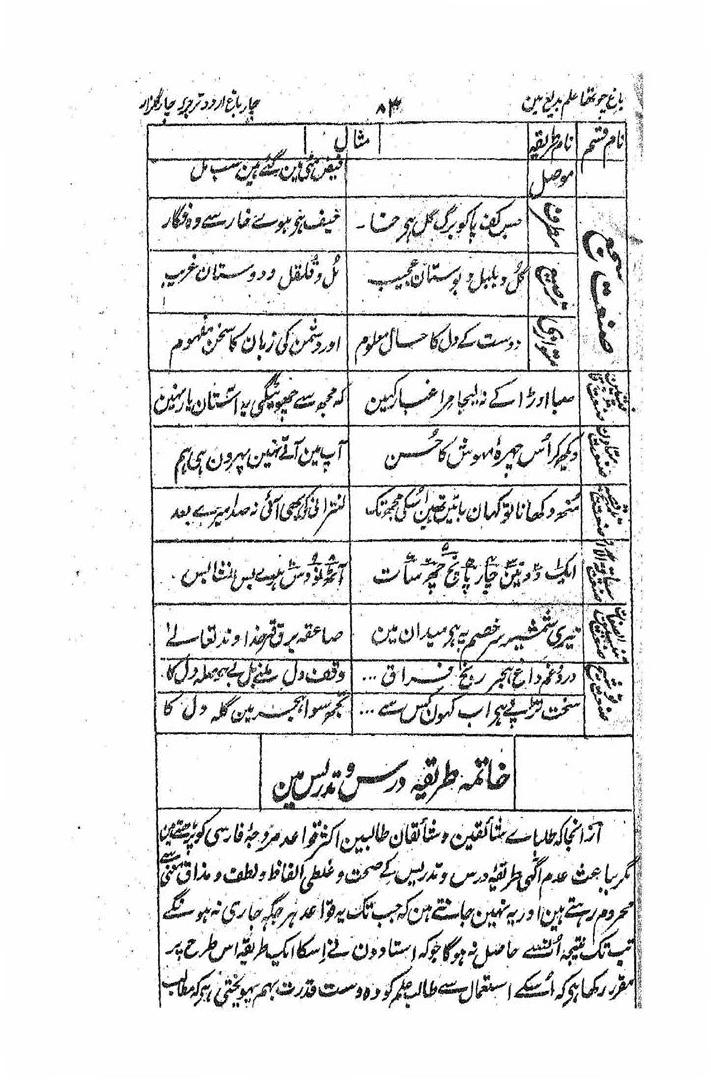 باغ چوتھا علم بدیع مین ۸۳ چار باغ اردو ترجمہ چار گلزار
نام قسم نام طریقہ مثال
موصل فیض مئی مین گئے مین سب مل
صنعت سجع
مطرف جس کف پا کو برگ گل ہی حنا - حیف ہی ہوے خار سے وہ فگار
ترصیع گل و بلبل و بوستان عجیب مل و قلقل و دوستان غریب
متوازی دوست کے دل کا حال معلوم اور دشمن کی زبان کا سخن مفہوم
صبا اوڑا کے نہ لیجا مرا غبار کہین کہ مجھ سے چھوٹیگی یہ آستان یار نہین
دیکھ کر اُس چہرۂ مہوش کا حُسن آپ مین آتے نہین پہرون ہی ہم
منھ دکھانا تو کہان باتین تھین اُسکی مجھ تک لنترانی کی بھی آئی نہ صدا میرے بعد
ایک دو تین چار پانچ چھ سات آٹھ نو دس ہوے بس انشا بس
تیری شمشیر سر خصم پہ ہی میدان مین صاعقہ برق قہر خدا وند تعالے
درد و غم داغ ہجر رنج فراق ... وقف دل
سخت تڑپے ہی اب کہون کس سے ... تجھ سوا ہجر مین گلہ دل کا
خاتمہ طریقہ درس و تدریس مین
از انجا کہ طلباے شائقین و شائقان طالبین اکثر قواعد مروجۂ فارسی کو پڑھتے مین
مگر بباعث عدم آگہی طریقۂ درس و تدریس کے صحت و غلطی الفاظ و لطف و مذاق معنی سے
محروم رہتے ہین اور یہ نہین جانتے ہین کہ جب تک یہ قواعد ہر جگہ جاری نہ ہونگے
تب تک نتیجہ اُنسے حاصل نہ ہوگا جو کہ استادون نے اِسکا ایک طریقہ اس طرح پر
مقرر رکھا ہی کہ اُسکے استعمال سے طالب علم کو وہ دست قدرت بہم پہونچتی ہی کہ مطالب